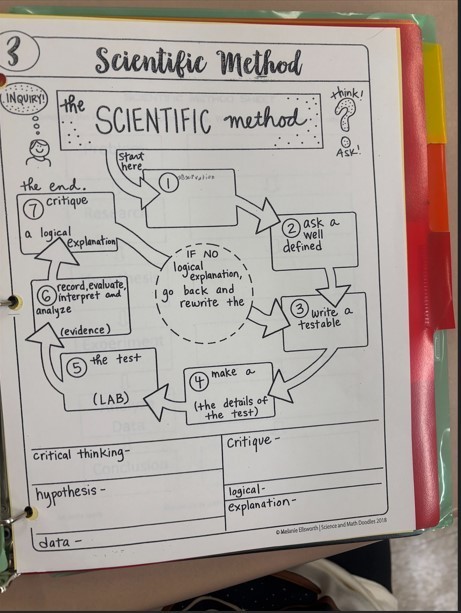 3
Scientific Method
INQUIRY!
the
SCIENTIFIC method
think!
ASK!
Start
here
the end.
1
7 critique
a logical
explanation
2 ask a
well
defined
IF NO
logical
explanation,
go back and
rewrite the
6 record, evaluate,
interpret and
analyze
(evidence)
3 write a
testable
5 the test
(LAB)
4 make a
(the details of
the test)
critical thinking-
Critique -
hypothesis -
logical-
explanation-
data -
© Melanie Ellsworth | Science and Math Doodles 2018